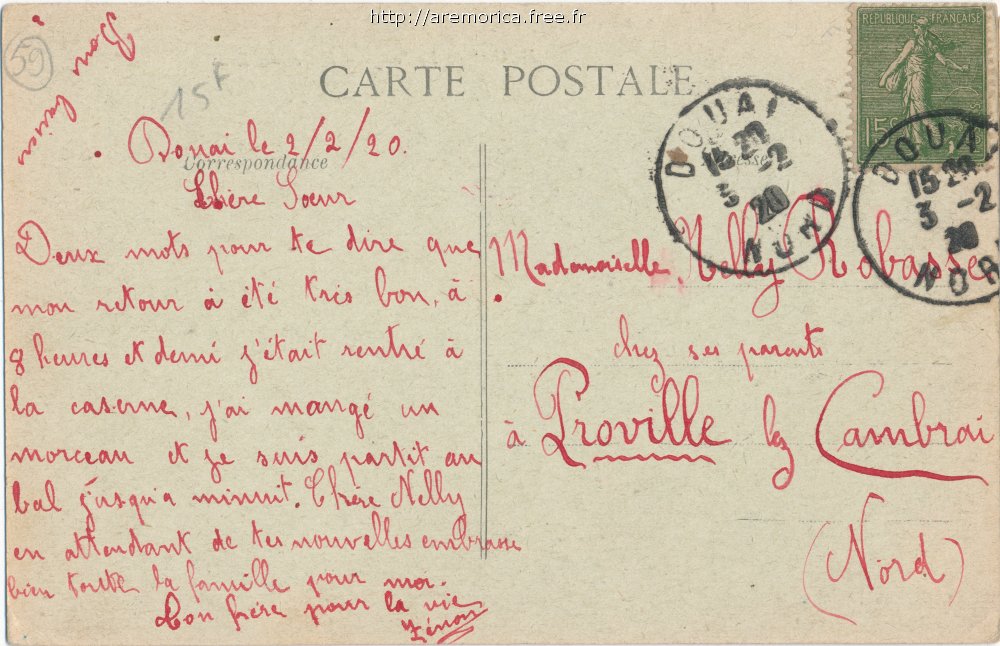 http://aremorica.free.fr
59
Bons baisers
15F
RÉPUBLIQUE FRANÇAISE
15c
CARTE POSTALE
Correspondance
Adresse
DOUAI
15 20
3 -2
20
NORD
DOUAI
15 20
3 -2
20
NORD
Douai le 2/2/20.
Chère Soeur
Deux mots pour te dire que
mon retour à été très bon, à
8 heures et demi j'était rentré à
la caserne, j'ai mangé un
morceau et je suis partit au
bal j'usqu'a minuit. Chère Nelly
en attendant de tes nouvelles embrasse
bien toute la famille pour moi.
Ton frère pour la vie
Zénon
Mademoiselle Nelly Robasse
chez ses parents
à Proville lez Cambrai
(Nord)